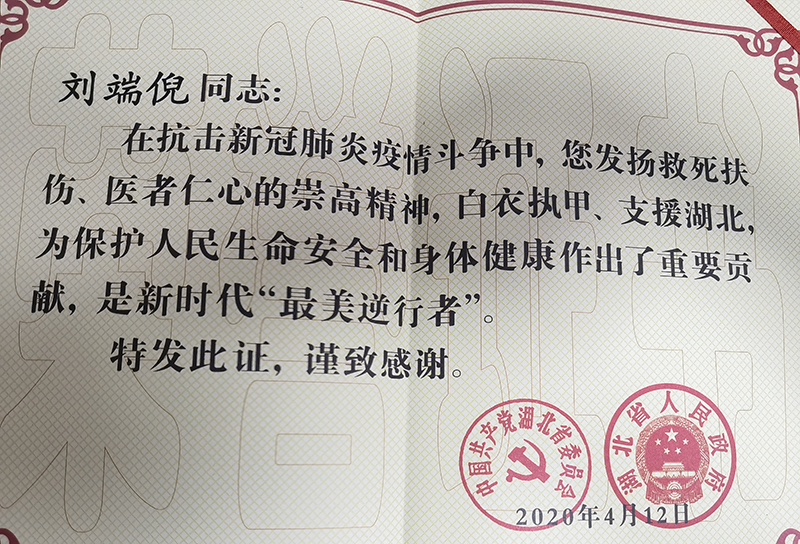 刘端倪同志：
在抗击新冠肺炎疫情斗争中，您发扬救死扶
伤、医者仁心的崇高精神，白衣执甲、支援湖北，
为保护人民生命安全和身体健康作出了重要贡
献，是新时代“最美逆行者”。
特发此证，谨致感谢。
中国共产党湖北省委员会
湖北省人民政府
2020年4月12日